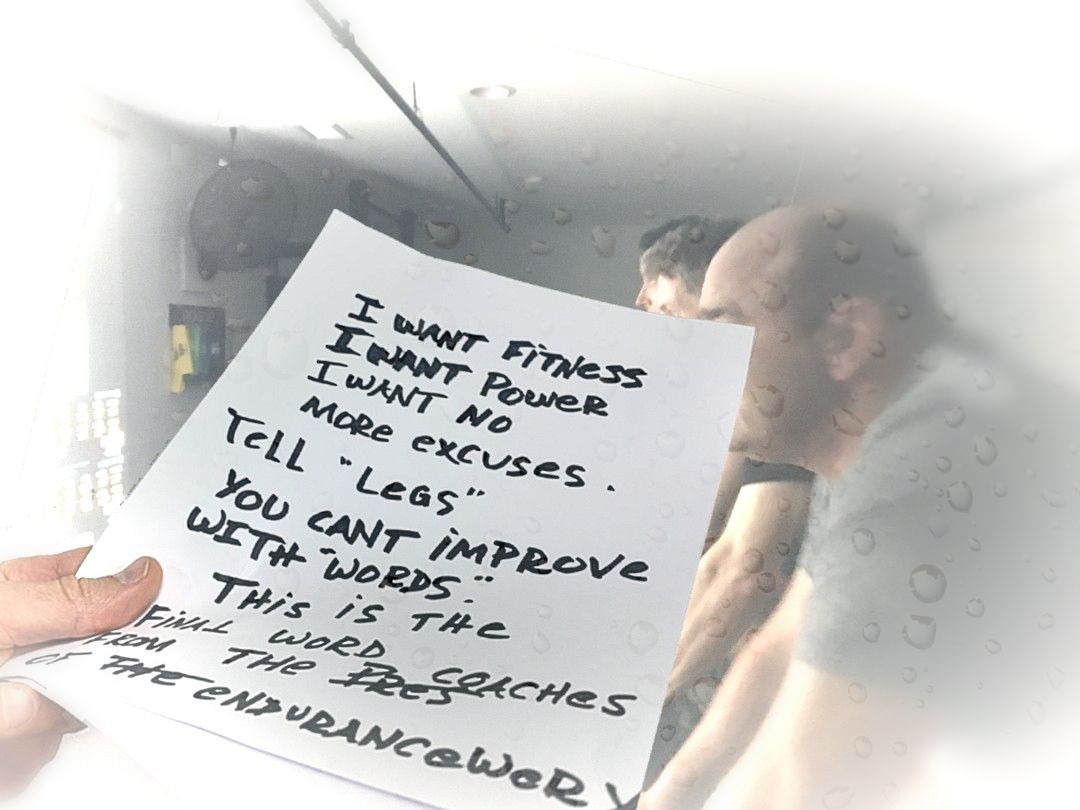 I WANT FiTNess
I WANT POWER
I WANT NO
MORE excuses.
Tell "LeGS"
YOU CANT iMPROVe
WITH "WORDS."
THis is THe
FiNAL WORD COACHes
FROM THE PRES
OF THE eNDURANCeWeRY